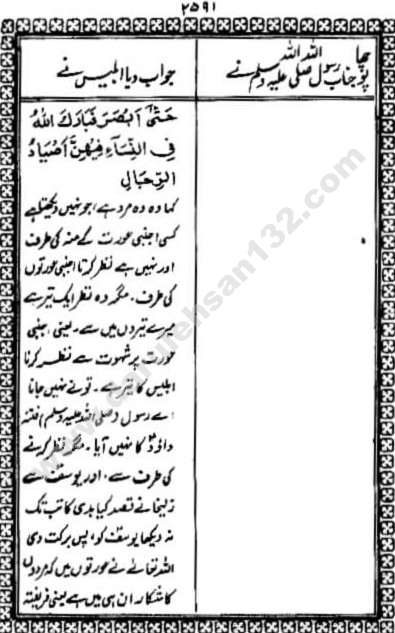 ۲۵۹۱
پوچھا جناب رسول اللہ صلی اللہ علیہ وسلم نے
جواب دیا ابلیس نے
حَتّٰى اَبْصَرَ فَبَارَكَ اللهُ
فِي النِّسَآءِ فِيهِنَّ اَصْيَادُ
الرِّجَالِ
کہا وہ وہ مرد ہے، جو نہیں دیکھتا ہے
کسی اجنبی عورت کے منہ کی طرف
اور نہیں ہے نظر کرتا اجنبی عورتوں
کی طرف۔ مگر وہ نظر ایک تیر ہے
میرے تیروں میں سے۔ یعنی اجنبی
عورت پر شہوت سے نظر کرنا
ابلیس کا تیر ہے۔ تو نے نہیں جانا
اے رسول (صلی اللہ علیہ وسلم) فتنہ
داؤدؑ کا نہیں آیا۔ مگر نظر کرنے
کی طرف سے، اور یوسفؑ سے
زلیخا نے قصد کیا بدی کا تب تک
نہ دیکھا یوسفؑ کو، پس برکت دی
اللہ تعالےٰ نے عورتوں میں کہ مردوں
کا شکار ان ہی میں ہے یعنی فریفتہ
www.darulehsan132.com